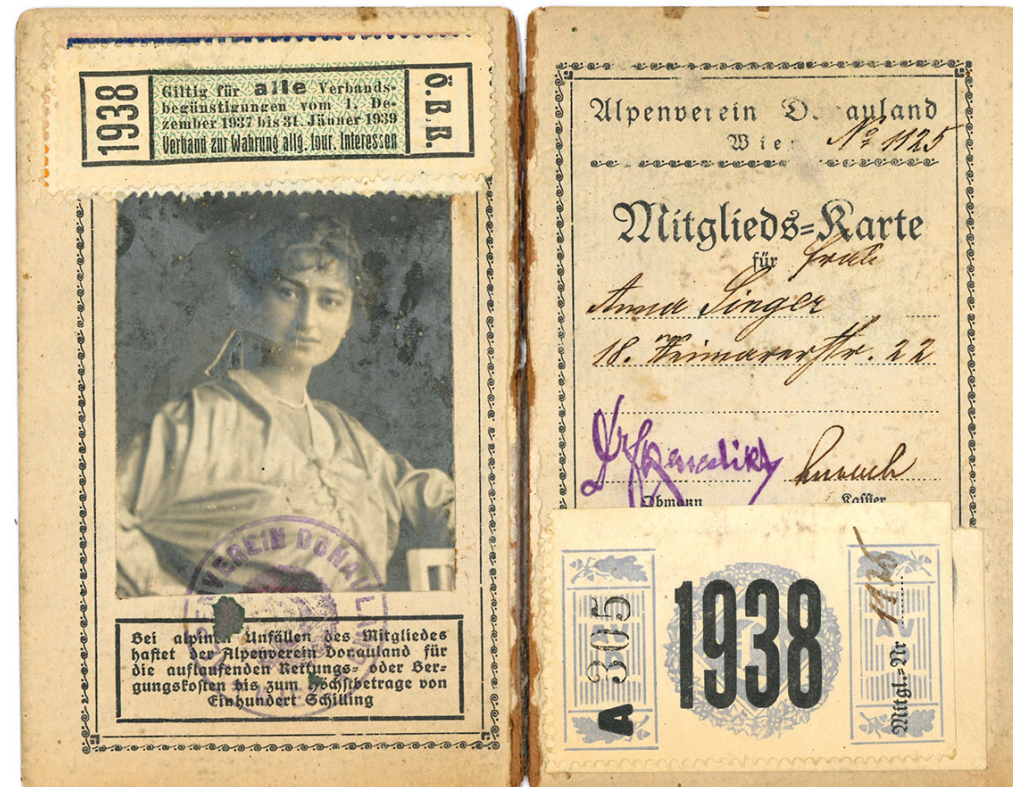 1938
Giltig für alle Verbands-
begünstigungen vom 1. De-
zember 1937 bis 31. Jänner 1939
Verband zur Wahrung allg. tour. Interessen
Ö. B. B.
VEREIN DONAULA
Bei alpinen Unfällen des Mitgliedes
haftet der Alpenverein Donauland für
die auflaufenden Rettungs- oder Ber-
gungskosten bis zum Höchstbetrage von
Einhundert Schilling
Alpenverein D. auland
Wie
No 1125
Mitglieds-Karte
für Frau
Anna Singer
18. Weimarerstr. 22
Obmann Kassier
A 305
1938
Mitgl.-Nr 1125